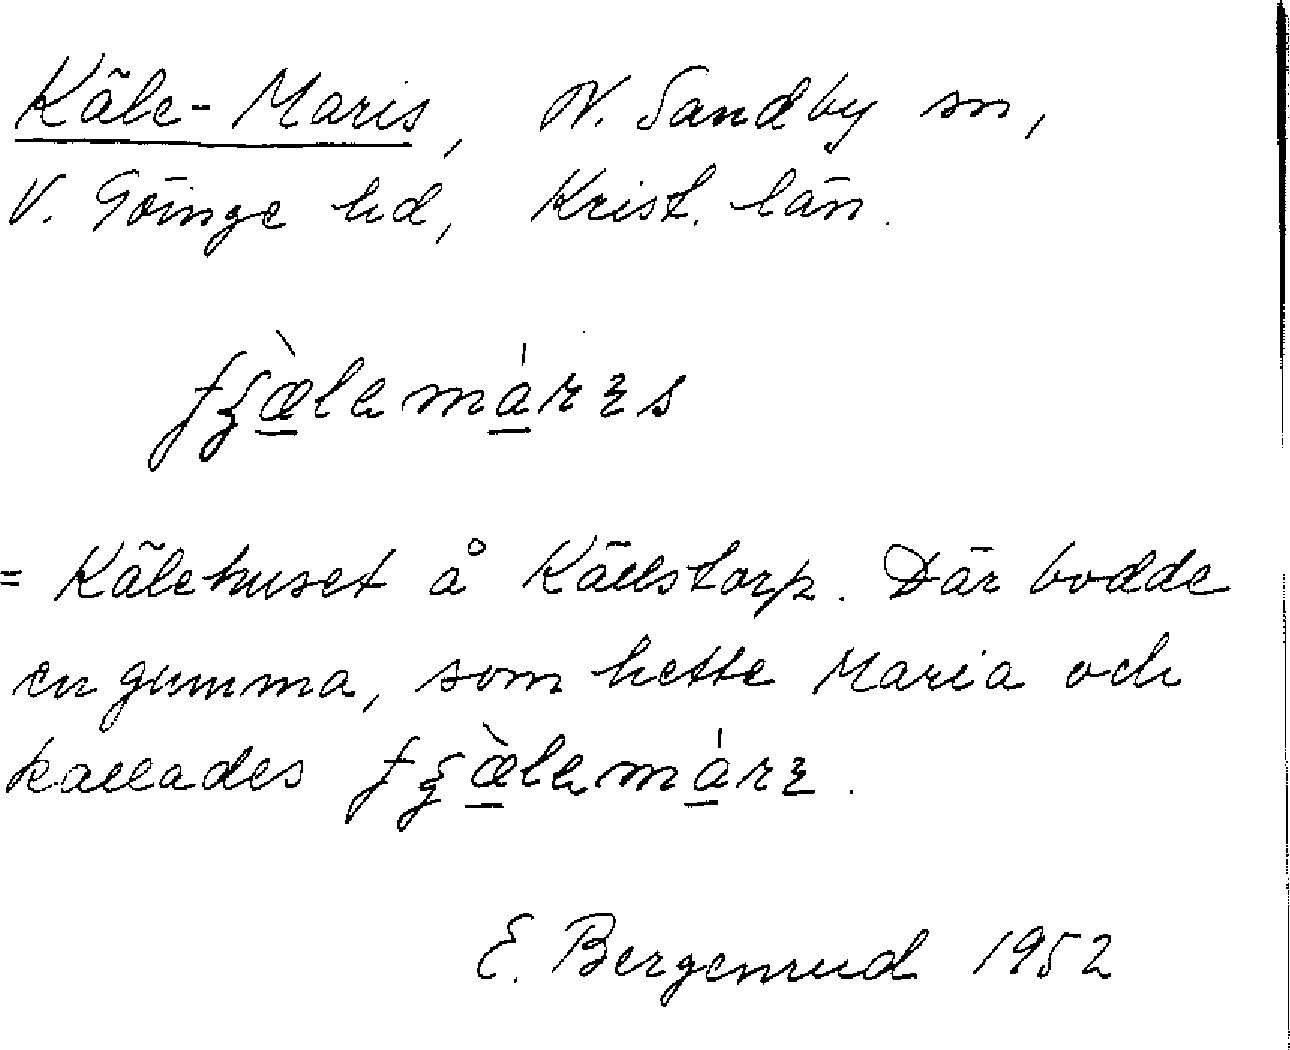 Käle-Maris, N. Sandby sn,
V. Göinge hd, Krist. län.
= Kälehuset å Källstorp. Där bodde
en gumma, som hette Maria och
kallades
E. Bergenrud 1952